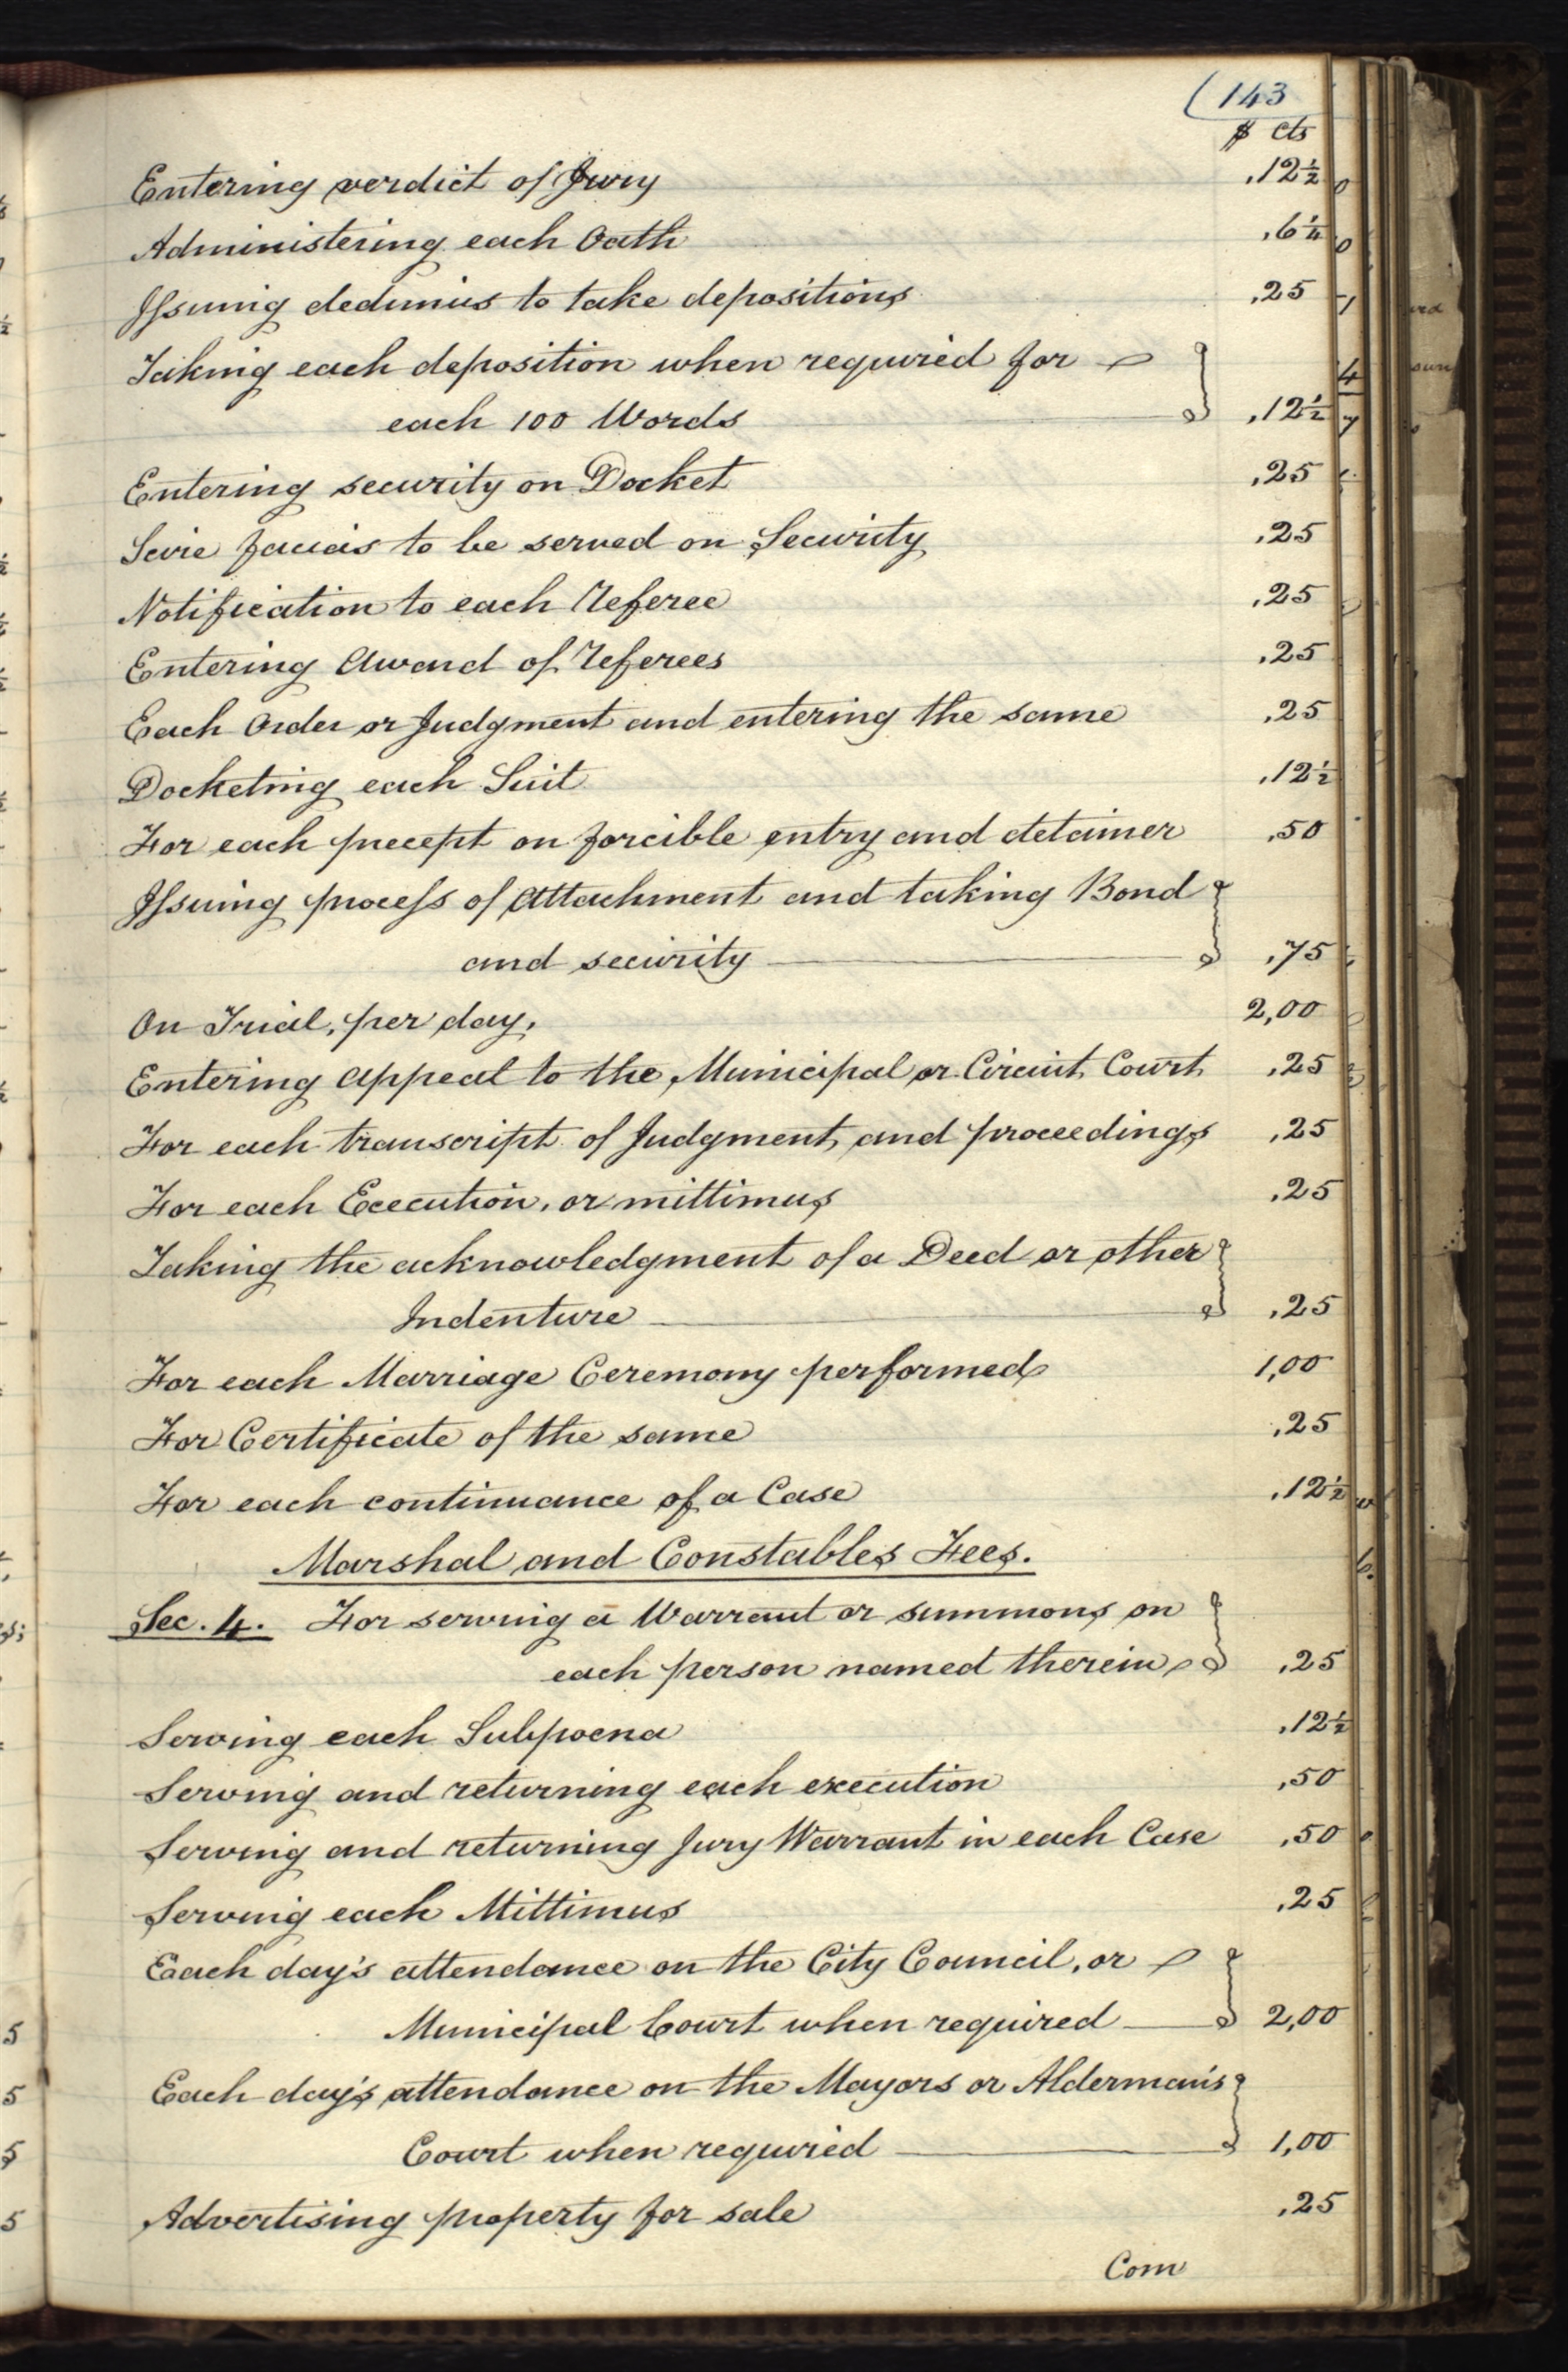 (143
$ cts
Entering verdict of Jury ,12½
Administering each Oath ,6¼
Issuing dedimus to take depositions ,25
Taking each deposition when required for
each 100 Words ,12½
Entering security on Docket ,25
Scire facias to be served on Security ,25
Notification to each Referee ,25
Entering Award of Referees ,25
Each Order or Judgment and entering the same ,25
Docketing each Suit ,12½
For each precept on forcible entry and detainer ,50
Issuing process of Attachment and taking Bond
and security ,75
On Trial, per day, 2,00
Entering appeal to the Municipal or Circuit Court ,25
For each transcript of Judgment and proceedings ,25
For each Execution, or mittimus ,25
Taking the acknowledgment of a Deed or other
Indenture ,25
For each Marriage Ceremony performed 1,00
For Certificate of the same ,25
For each continuance of a Case ,12½
Marshal and Constables Fees.
Sec. 4. For serving a Warrant or summons on
each person named therein ,25
Serving each Subpoena ,12½
Serving and returning each execution ,50
Serving and returning Jury Warrant in each Case ,50
Serving each Mittimus ,25
Each day's attendance on the City Council, or
Municipal Court when required 2,00
Each day's attendance on the Mayors or Alderman's
Court when required 1,00
Advertising property for sale ,25
Com